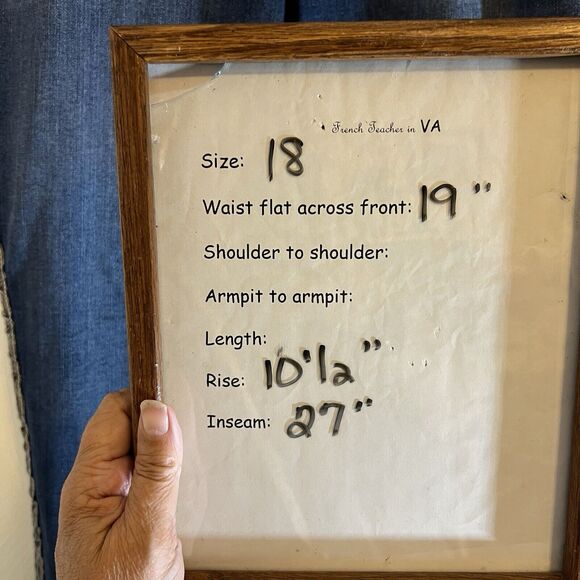 French Teacher in VA
Size: 18
Waist flat across front: 19"
Shoulder to shoulder:
Armpit to armpit:
Length:
Rise: 10 1/2"
Inseam: 27"